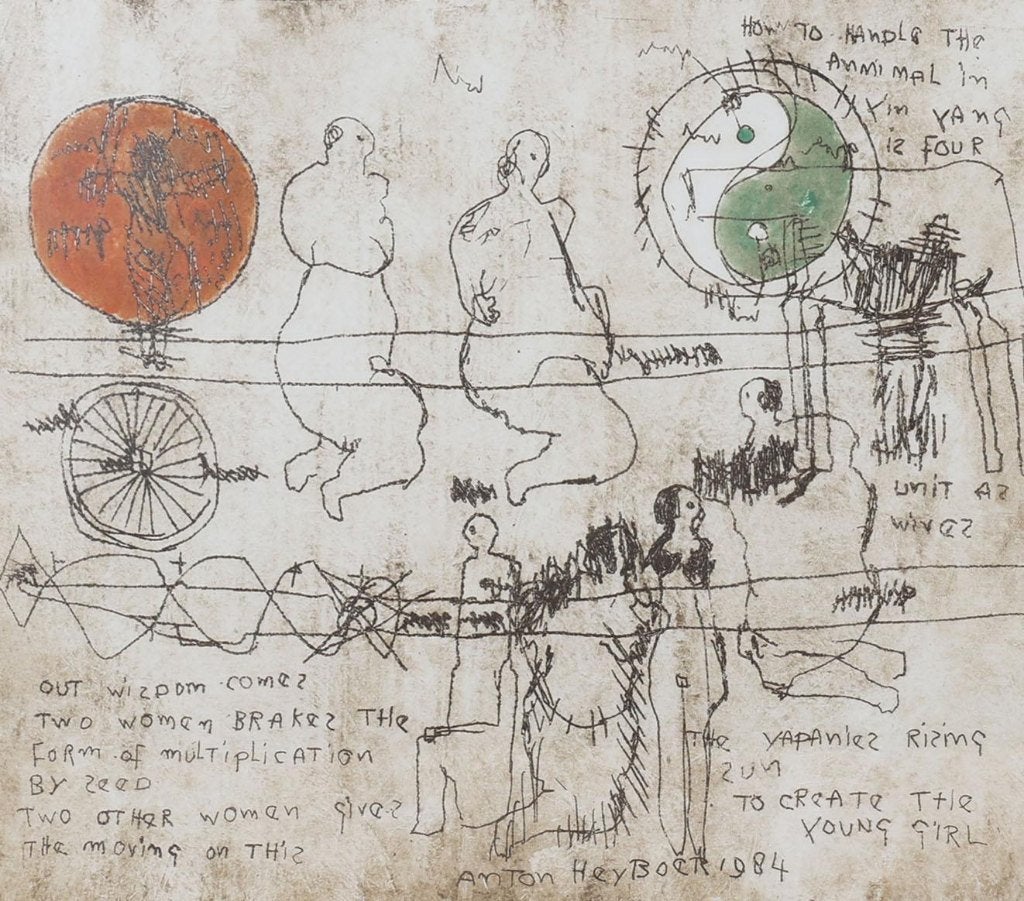 HOW TO HANDLE THE
ANNIMAL in
Yin YANG
iS FOUR
UNIT AS
WIVES
OUT WISDOM COMES
TWO WOMEN BRAKES THE
FORM OF MULTIPLICATION
BY SEED
TWO OTHER WOMEN GIVES
THE MOVING ON THIS
THE YAPANIES RISING
SUN
TO CREATE THE
YOUNG GIRL
ANTON HEYBOER 1984